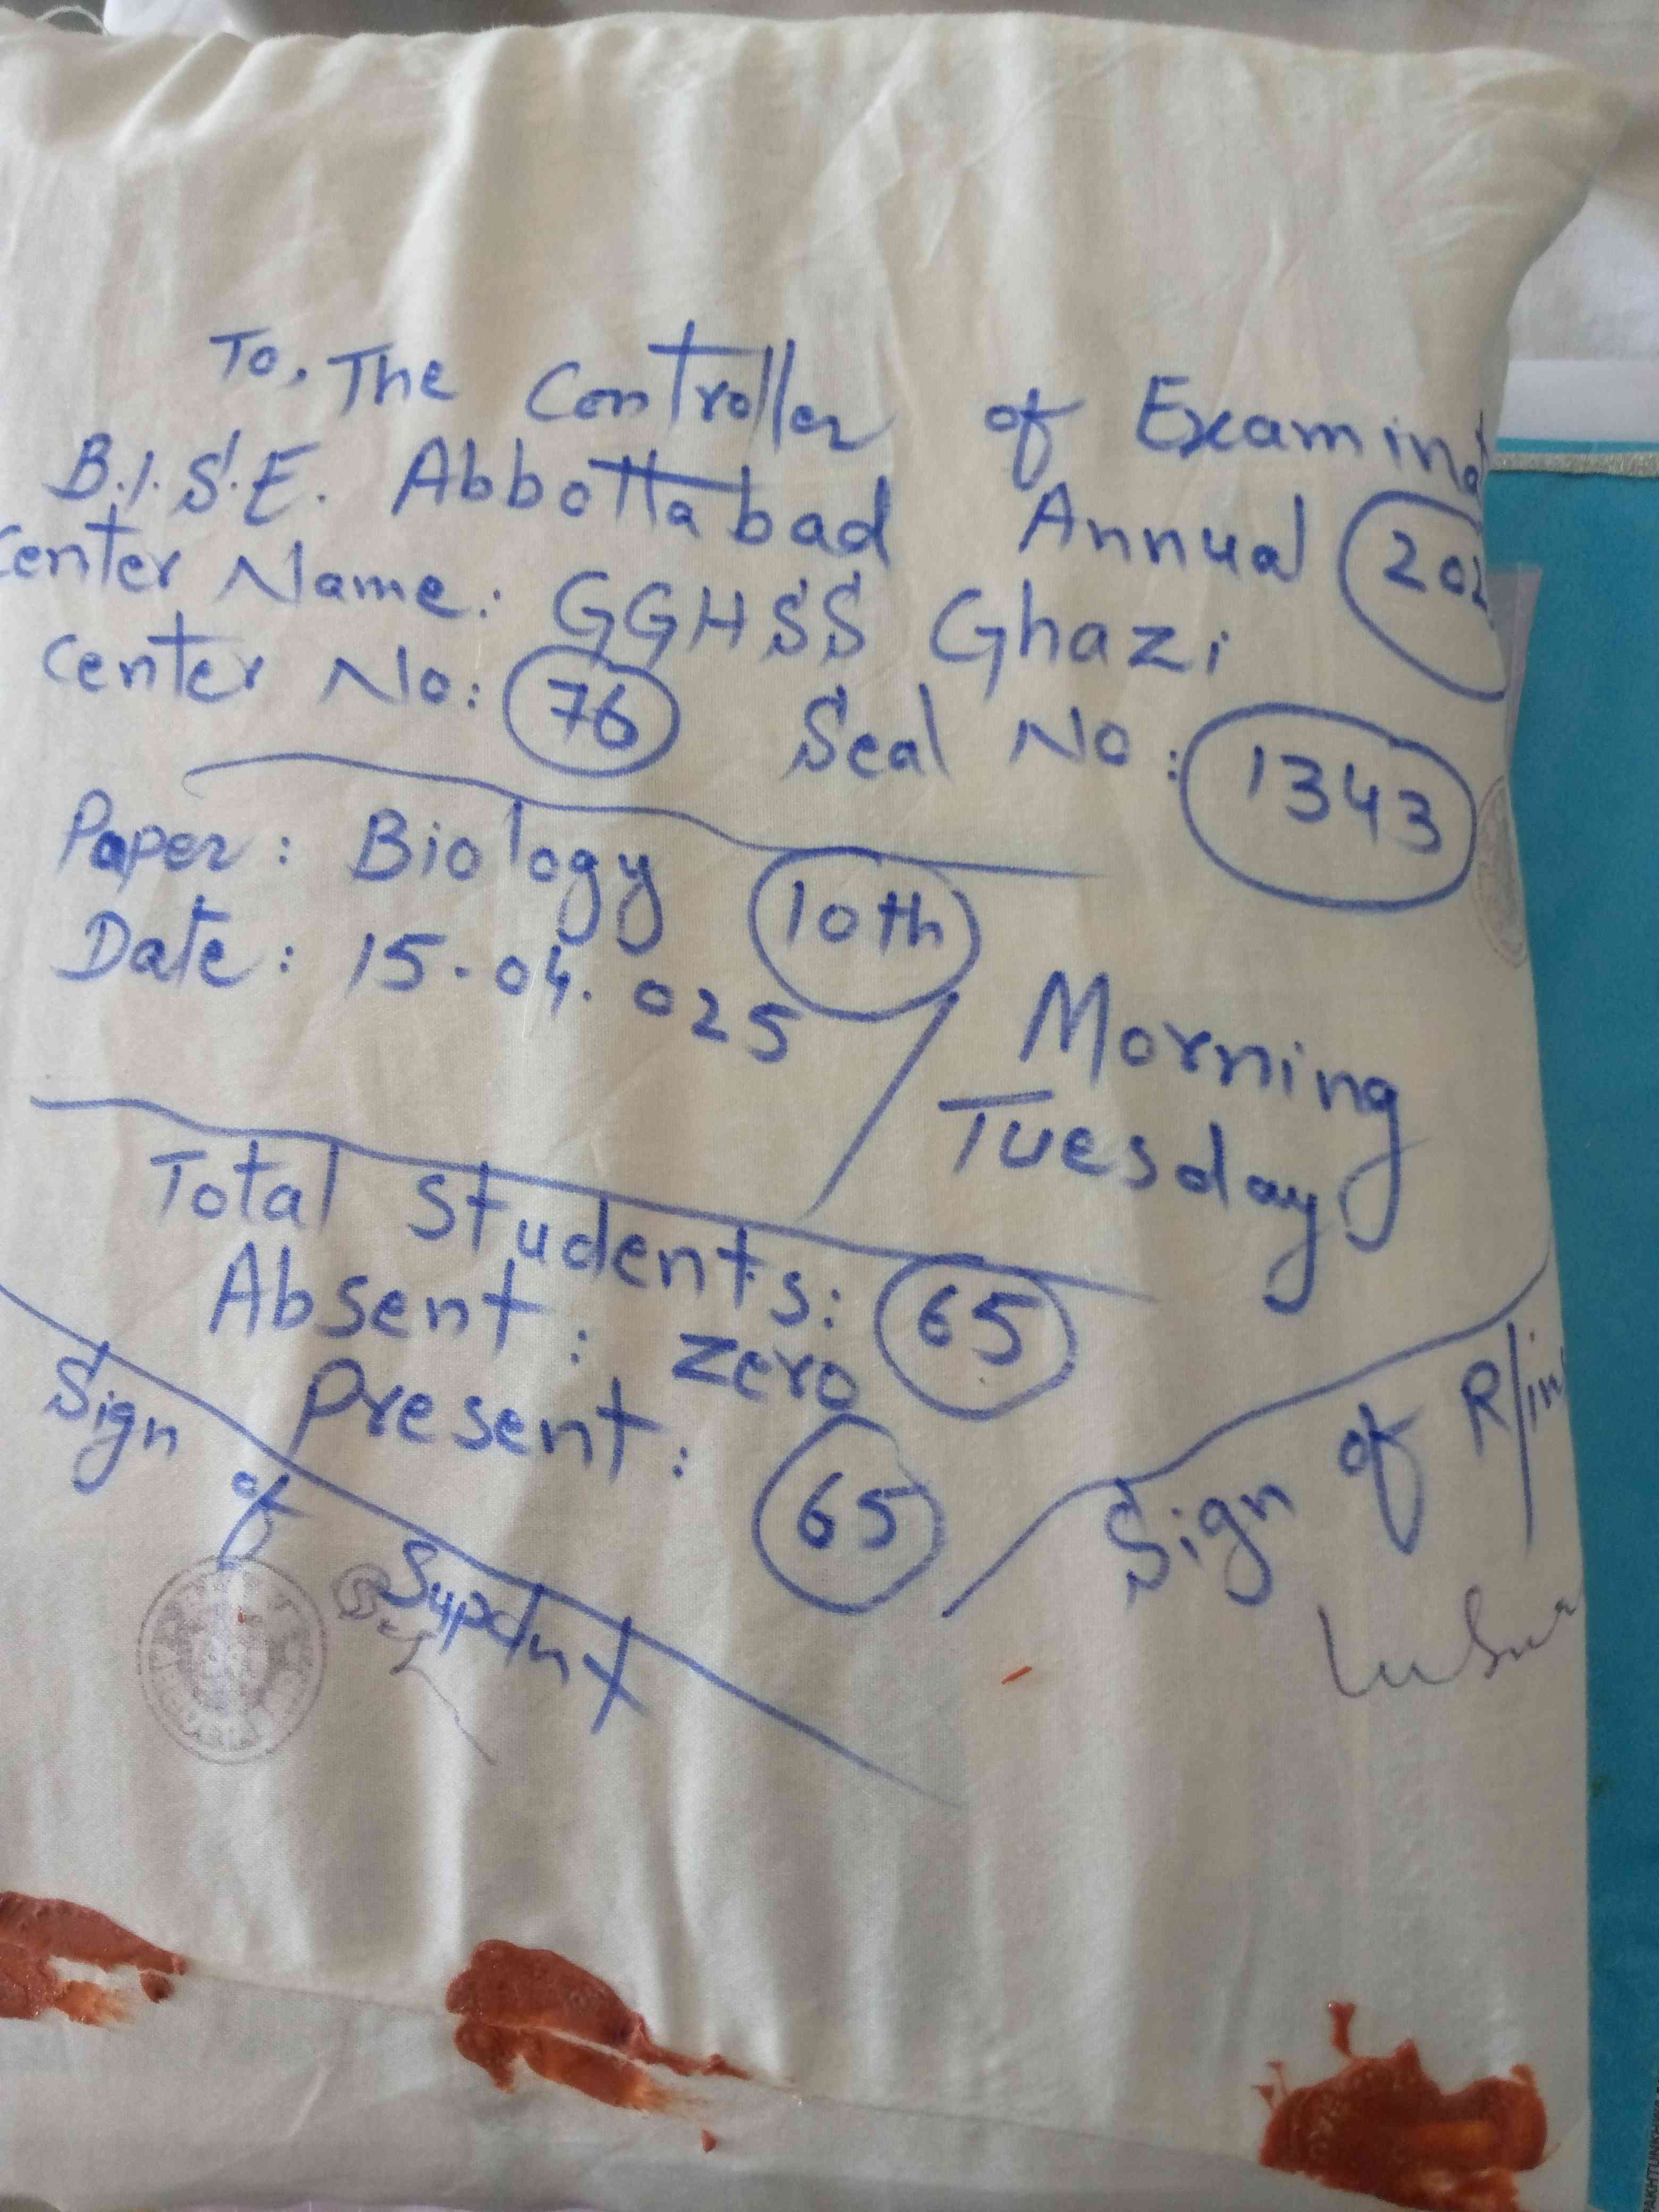 To, The Controller of Examinat
B.I.S.E. Abbottabad Annual 202
Center Name: GGHSS Ghazi
Center No: 76 Seal No: 1343
Paper: Biology 10th
Date: 15.04.025
Morning
Tuesday
Total Students: 65
Absent: Zero
Present: 65
Sign of Supdnt
Sign of R/in